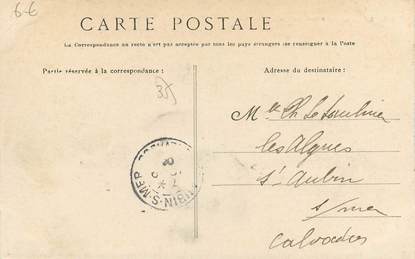 6-6
CARTE POSTALE
La Correspondance au recto n'est pas acceptée par tous les pays étrangers (Se renseigner à la Poste
Partie réservée à la correspondance :
Adresse du destinataire :
35
Ph
les Algues
St Aubin
s/mer
Calvados
UBIN-S-MER